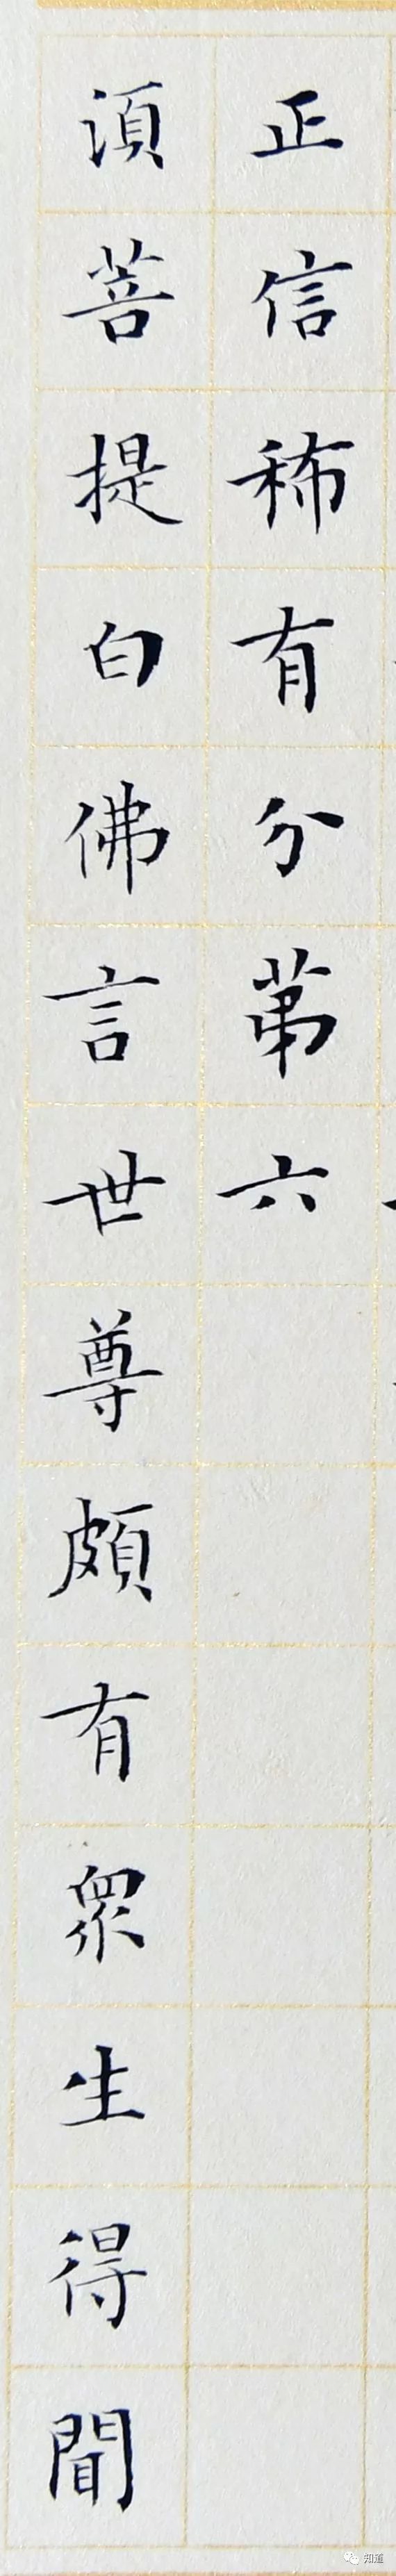 正信稀有分第六
須菩提白佛言世尊頗有眾生得聞
知道